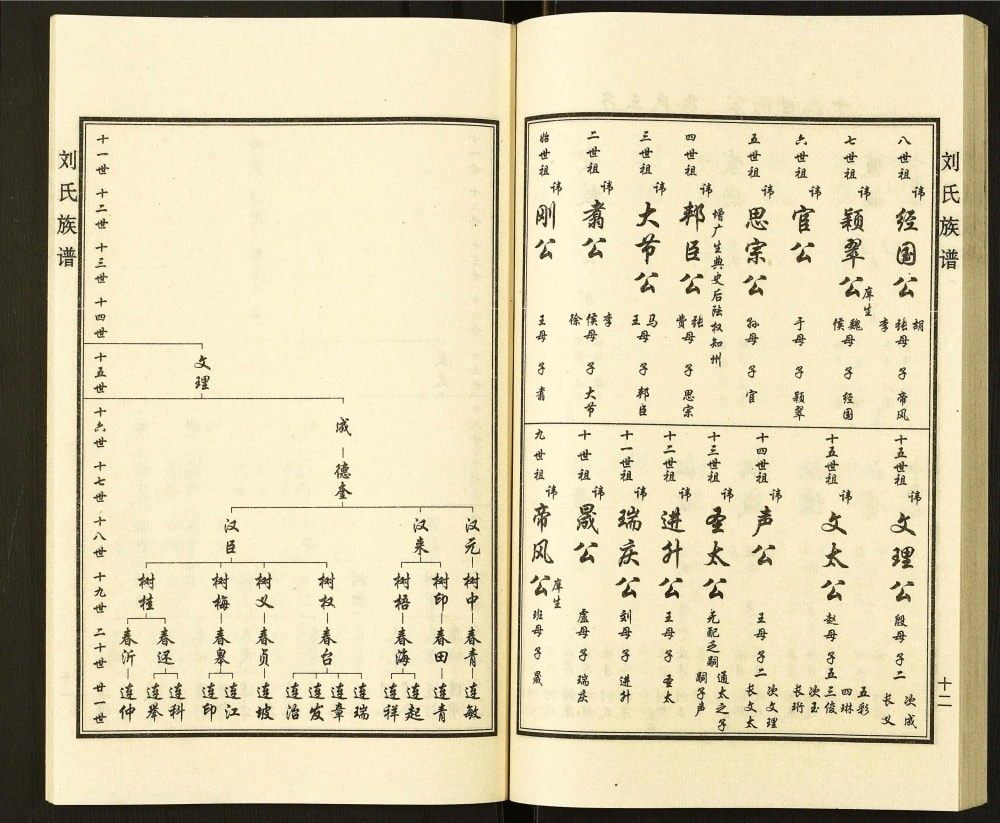 刘氏族谱
十一世 十二世 十三世 十四世 十五世 十六世 十七世 十八世 十九世 二十世 廿一世
文理
成
德奎
汉臣
汉来
汉元
树桂
树梅
树义
树权
树梧
树印
树中
春沂
春还
春皋
春贞
春台
春海
春田
春青
连仲
连举
连科
连印
连江
连坡
连治
连发
连章
连瑞
连祥
连起
连青
连敏
始世祖 讳 刚公 王母 子 翥
二世祖 讳 翥公 徐 侯母 李 子 大节
三世祖 讳 大节公 王 马母 子 邦臣
四世祖 讳 邦臣公 费 张母 子 思宗
增广生典史后陆权知州
五世祖 讳 思宗公 孙母 子 官
六世祖 讳 官公 于母 子 颖翠
七世祖 讳 颖翠公 庠生 侯 魏母 子 经国
八世祖 讳 经国公 李 张母 胡 子 帝风
九世祖 讳 帝风公 庠生 班母 子 晟
十世祖 讳 晟公 卢母 子 瑞庆
十一世祖 讳 瑞庆公 刘母 子 进升
十二世祖 讳 进升公 王母 子 圣太
十三世祖 讳 圣太公 无配乏嗣 嗣子声 通太之子
十四世祖 讳 声公 王母 子二 长文太 次文理
十五世祖 讳 文太公 赵母 子五 长珩 次玉 三俊 四琳 五彩
十五世祖 讳 文理公 殷母 子二 长义 次成
刘氏族谱
十二